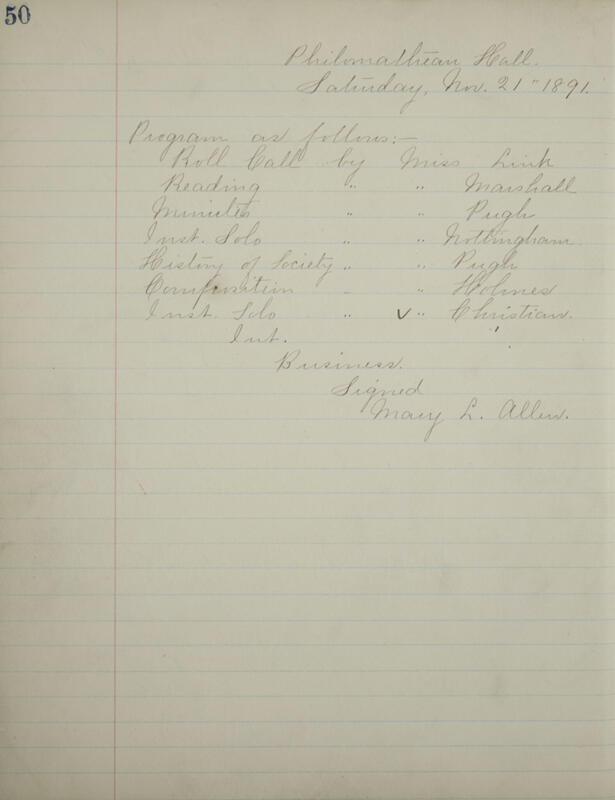 50
Philomathean Hall.
Saturday, Nov. 21" 1891.
Program as follows:—
Roll Call by Miss Link
Reading " " Marshall
Minutes " " Pugh
Inst. Solo " " Nottingham
History of Society " " Pugh
Composition " " Holmes
Inst. Solo " V " Christian.
Int.
Business.
Signed
Mary L. Allen.